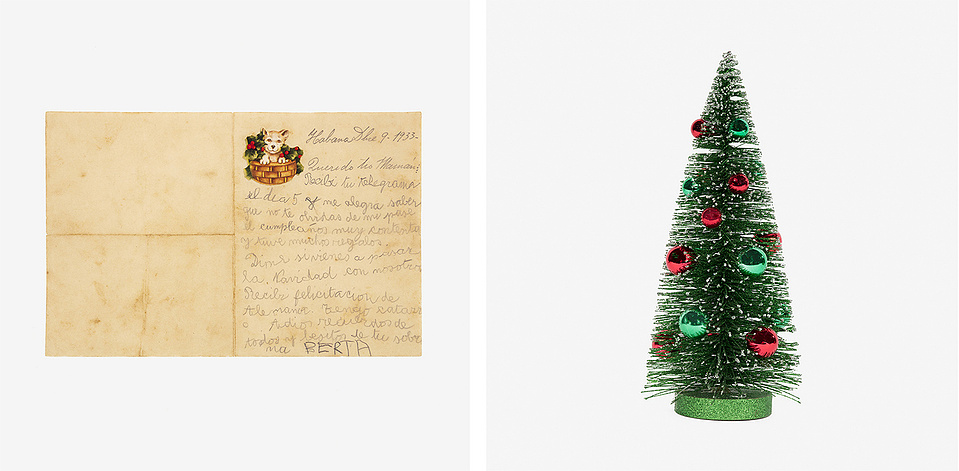 Habana Dbre 9-1933-
Querido tio
Recibi tu telegrama
el dia 5 y me alegra saber
que no te olvidas de mi pasé
el cumpleaños muy contenta
y tuve muchos regalos.
Dime si vienes a pasar
la Navidad con nosotros
Recibi felicitacion de
Alemania. Tengo
o Adios recuerdos de
todos y besitos de tu sobri
na BERTA